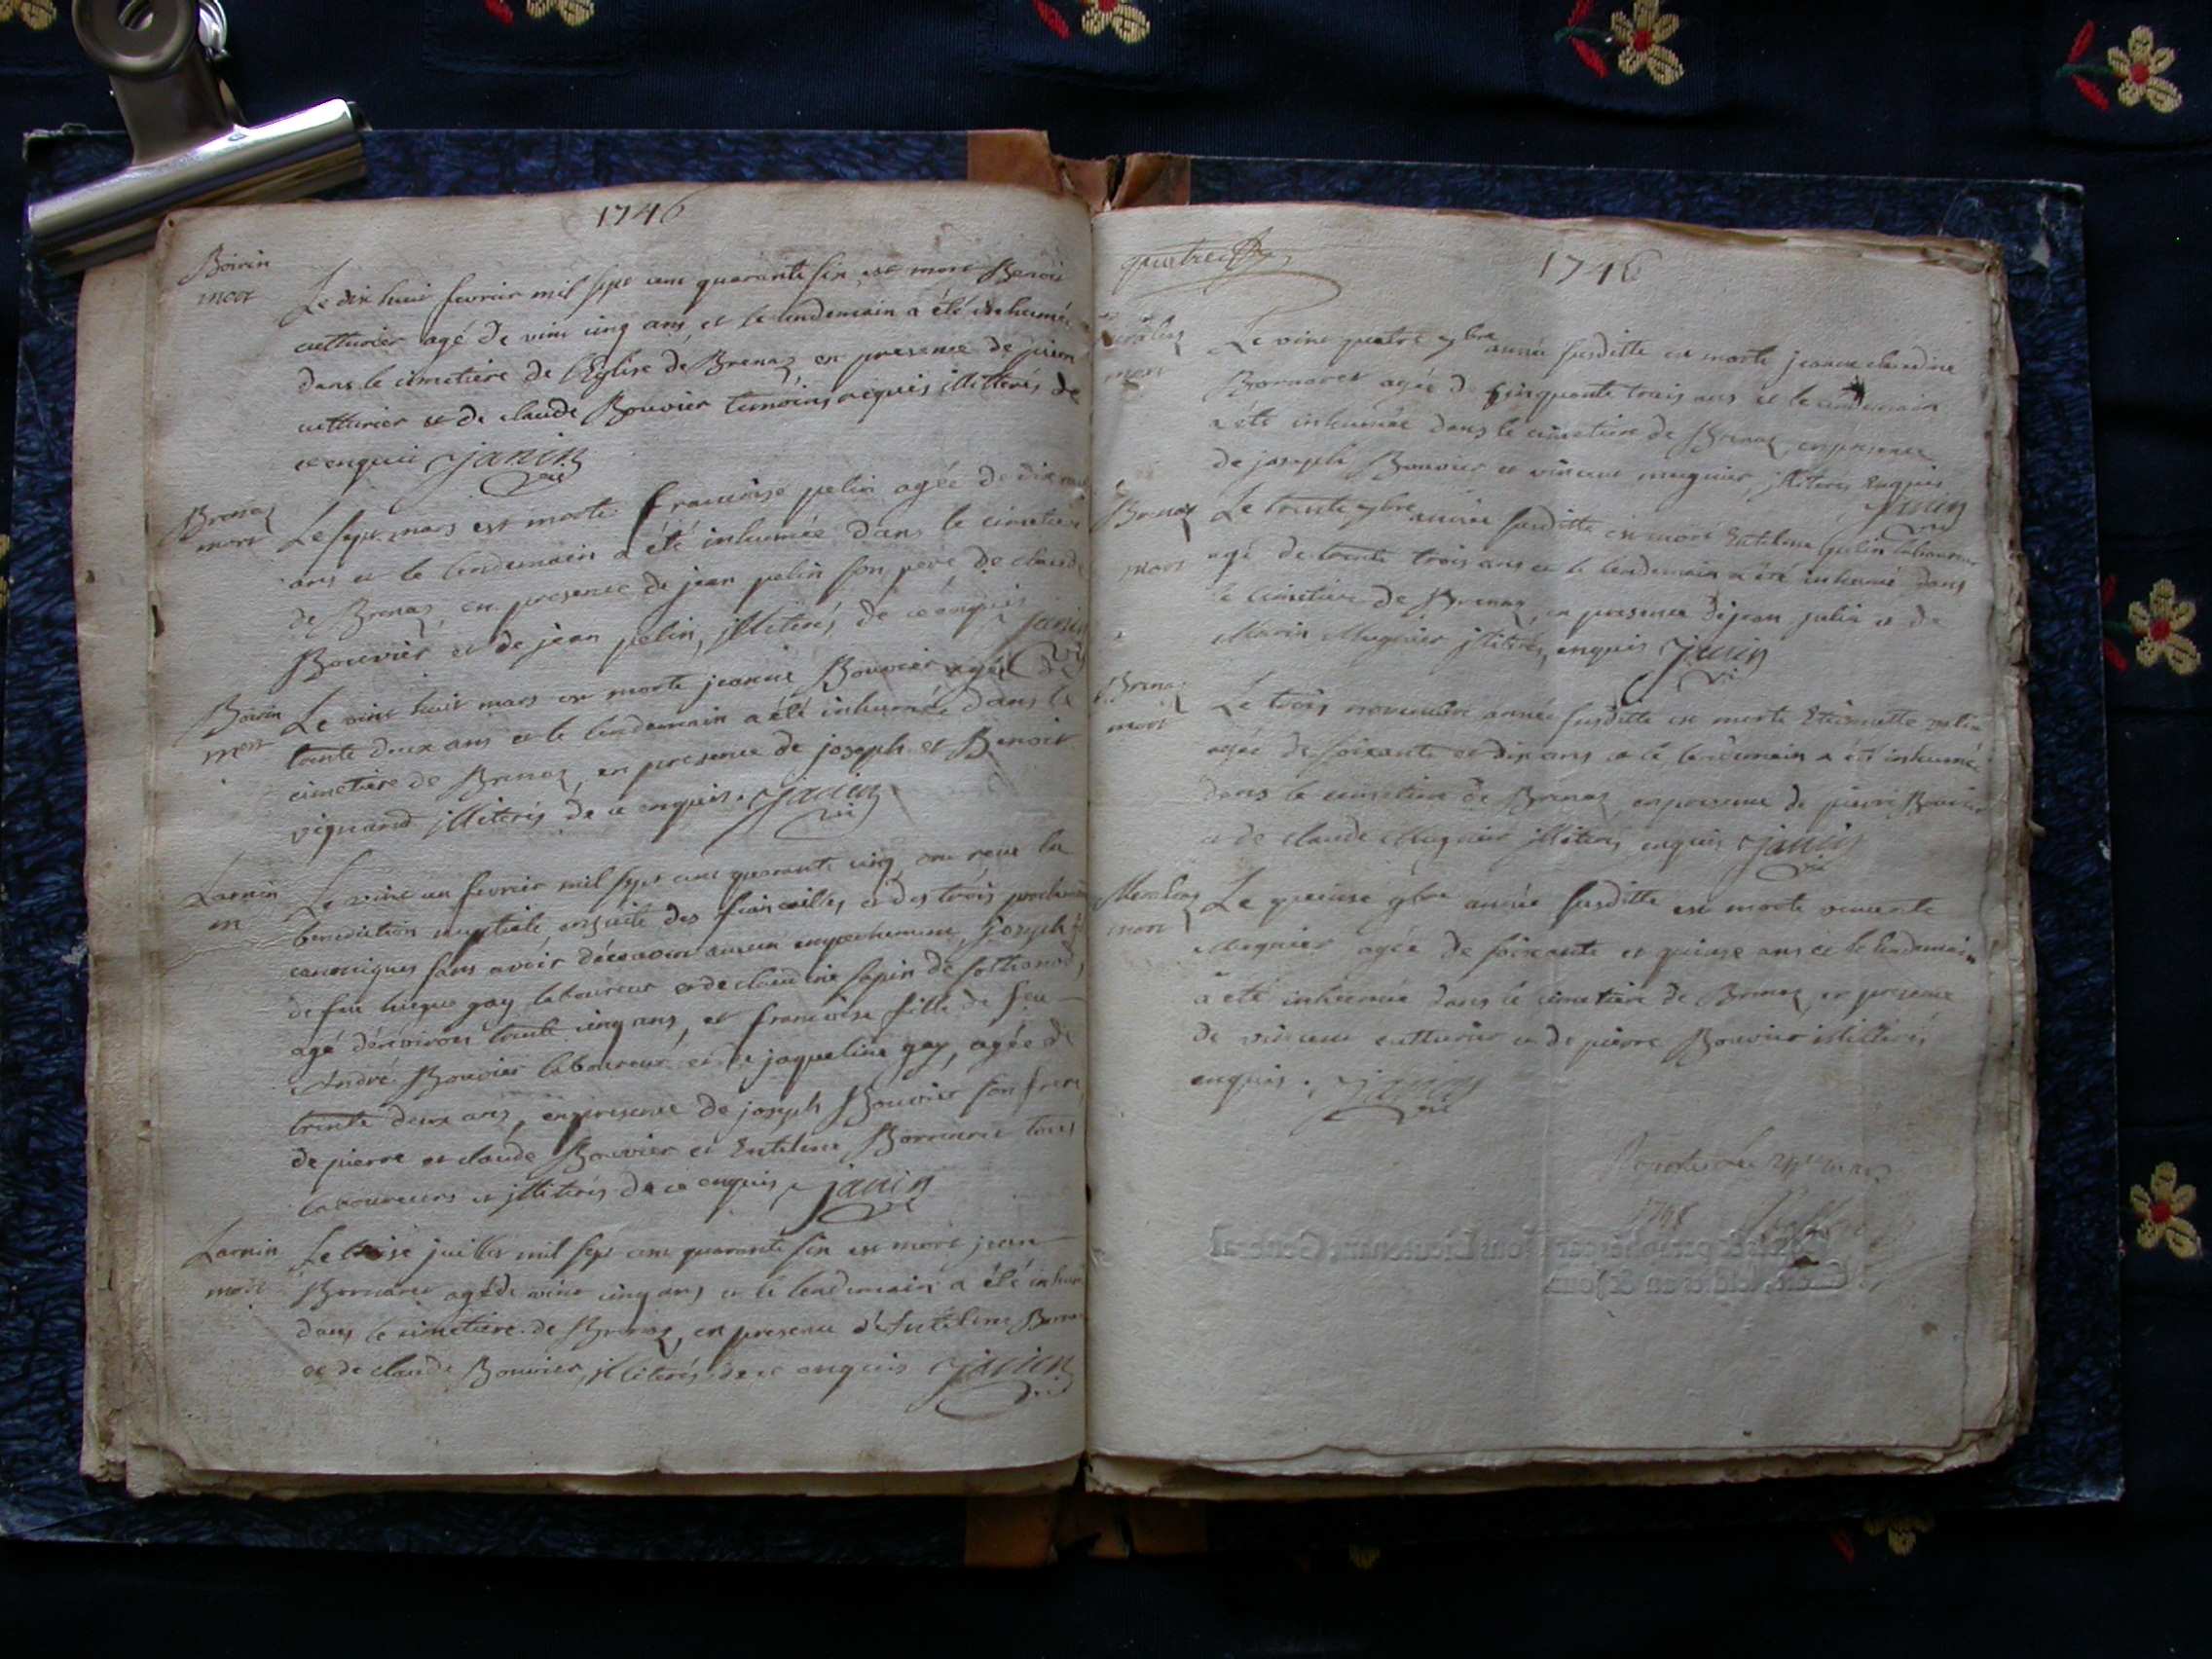 1746
Boirin
mort
Le dix huit fevrier mil sept cent quarante six, est mort Benoit
cutturier agé de vint cinq ans, et le lendemain a été inhumé
dans le cimetiere de l'Eglise de Brenaz, en presence de
cutturier et de claude Bouvier temoins requis illiterés de
ce enquis janin
Brenaz
mort
Le sept mars est morte francoise pelin agée de dix
ans et le lendemain a été inhumée dans le cimetiere
de Brenaz, en presence de jean pelin son pere, de claude
Bouvier et de jean pelin, jlliterés de ce enquis janin
Boirin
mort
Le vint huit mars est morte jeanne Bouvier agée de
trente deux ans et le lendemain a été inhumée dans le
cimetiere de Brenaz, en presence de joseph et Benoit
vignand jlliterés de ce enquis. janin
Larnin
m
Le vint un fevrier mil sept cent quarante cinq ont receu la
benediction nuptiale ensuite des fiancailles et des trois
canoniques sans avoir decouvert aucun empechement, joseph
de feu laboureur et de claudine sapin de sothonod,
agé d'environ trente cinq ans, et francoise fille de feu
André Bouvier laboureur et de jaqueline gay, agée de
trente deux ans, en presence de joseph Bouvier son frere
de pierre et claude Bouvier et Entelme Bornaret tous
laboureurs et jlliterés de ce enquis, janin
Larnin
mort
Le treise juillet mil sept cent quarante six est mort jean
Bornaret agé de vint cinq ans et le lendemain a été
dans le cimetiere de Brenaz, en presence d'Entelme
et de claude Bouvier, jlliterés de ce enquis janin
quatre
1746
mort
Le vint quatre 7bre année susditte est morte jeanne claudine
Bornaret agée de cinquante trois ans et le lendemain
a été inhumée dans le cimetiere de Brenaz, en presence
de joseph Bouvier et vincent mugnier, jlliterés Enquis
janin
Brenaz
mort
Le trente 7bre année susditte est mort Entelme laboureur
agé de trente trois ans et le lendemain a été inhumé dans
le cimetiere de Brenaz, en presence de jean et de
Marin Mugnier jlliterés, enquis janin
Brenaz
mort
Le trois novembre année susditte est morte Etiennette
agée de soixante et dix ans et le lendemain a été inhumée
dans le cimetiere de Brenaz, en presence de pierre Bouvier
et de claude Mugnier jlliterés enquis janin
mort
Le quinse 9bre année susditte est morte
Mugnier agée de soixante et quinse ans et le lendemain
a été inhumée dans le cimetiere de Brenaz, en presence
de vincent cutturier et de pierre Bouvier illiterés
enquis. janin
Lieutenant General